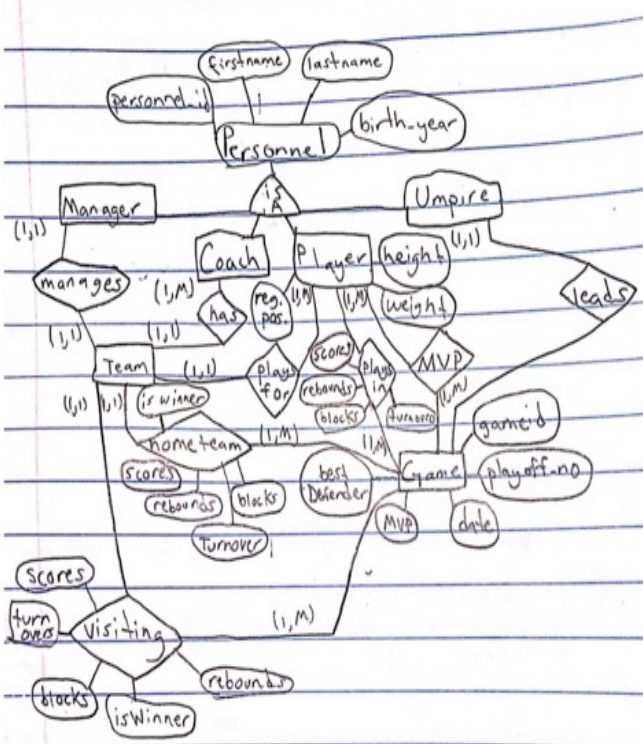 firstname
lastname
personnel_id
birth_year
Personnel
is
A
Manager
Umpire
(1,1)
(1,1)
Coach
Player
height
manages
(1,M)
reg.
pos.
(1,M)
(1,M)
weight
leads
has
(1,1)
(1,1)
Team
(1,1)
plays
for
scores
plays
in
MVP
(1,1)
(1,1)
is winner
rebounds
(1,M)
blocks
turnover
gameid
hometeam
(1,M)
(1,M)
best
Defender
Game
playoff_no
scores
rebounds
blocks
MVP
date
Turnover
scores
turn
overs
visiting
(1,M)
rebounds
blocks
isWinner